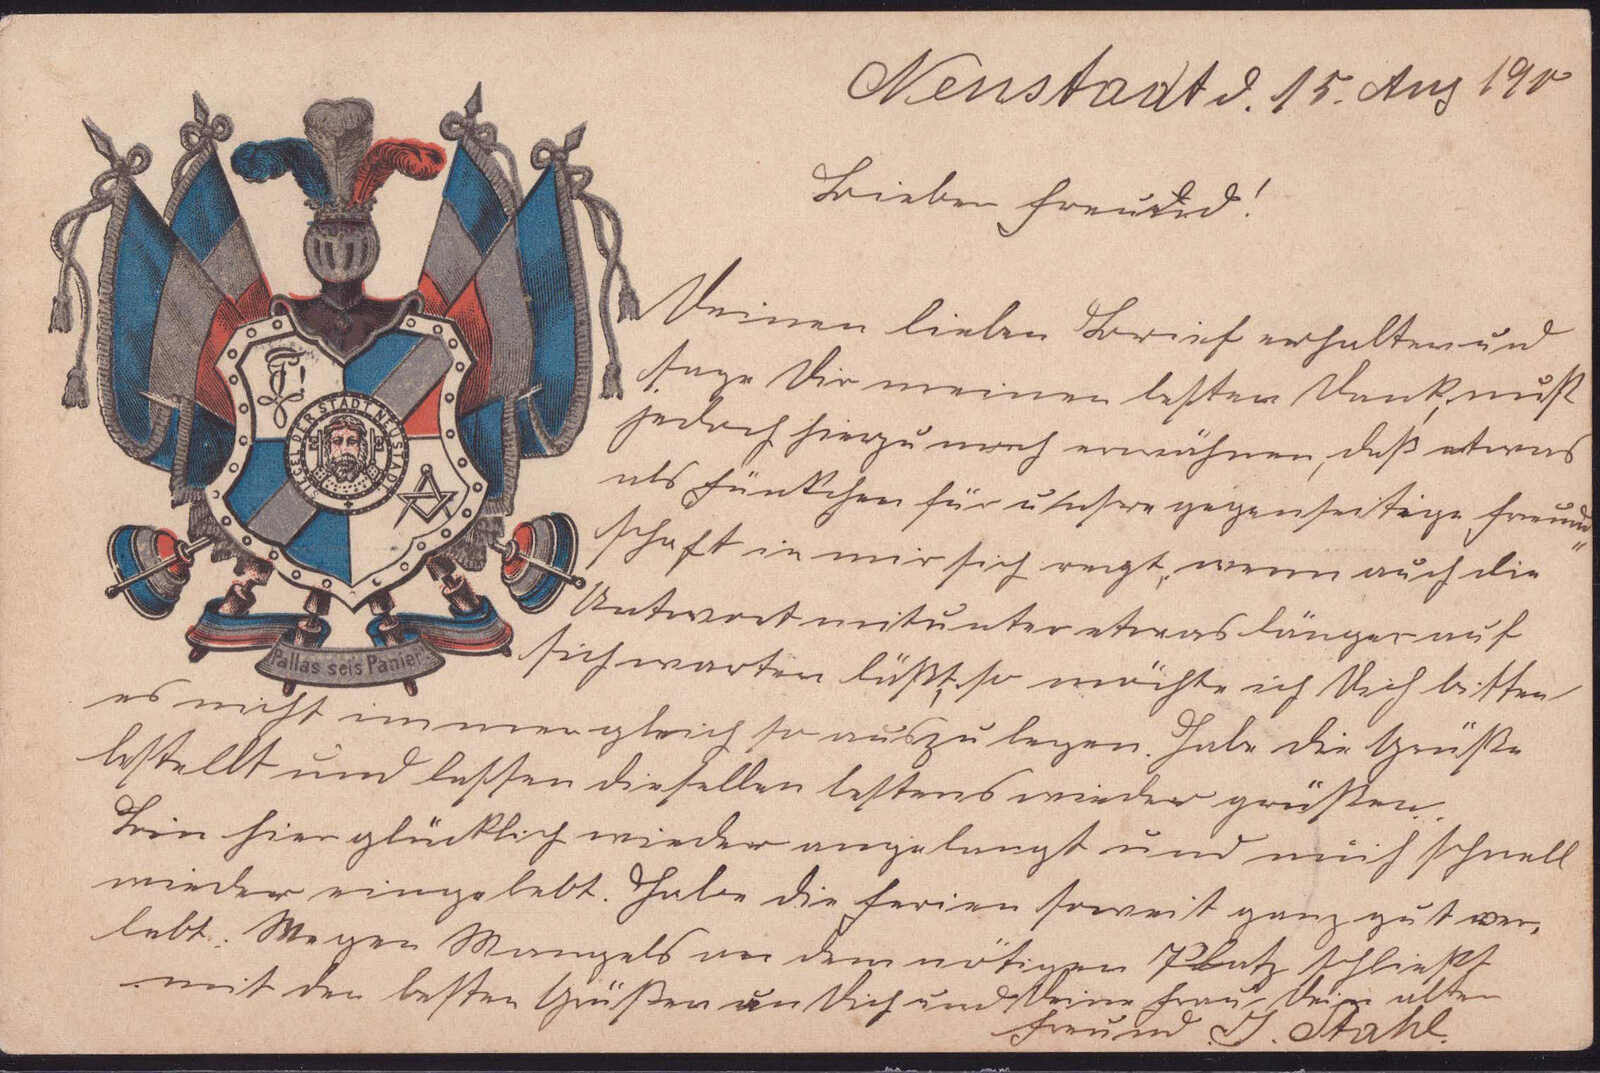 Neustadt d. 15. Aug 190
Lieber Freund!
Deinen lieben Brief erhalten und
sage Dir meinen besten Dank, muß
jedoch hierzu noch erwähnen, daß etwas
als Fünkchen für unsre gegenseitige Freund„
schaft in mir sich regt, wenn auch die
Antwort mitunter etwas länger auf
sich warten läßt, so möchte ich Dich bitten
es nicht immer gleich so auszulegen. Habe die Grüße
bestellt und lassen dieselben bestens wieder grüßen.
Bin hier glücklich wieder angelangt und mich schnell
wieder eingelebt. Habe die Ferien soweit ganz gut ver„
lebt. Wegen Mangels an dem nötigen Platz schließt
mit den besten Grüßen an Dich und Deine Frau Dein alter
Freund J. Stahl.
SIEGEL DER STADT NEUSTADT
Pallas sei's Panier